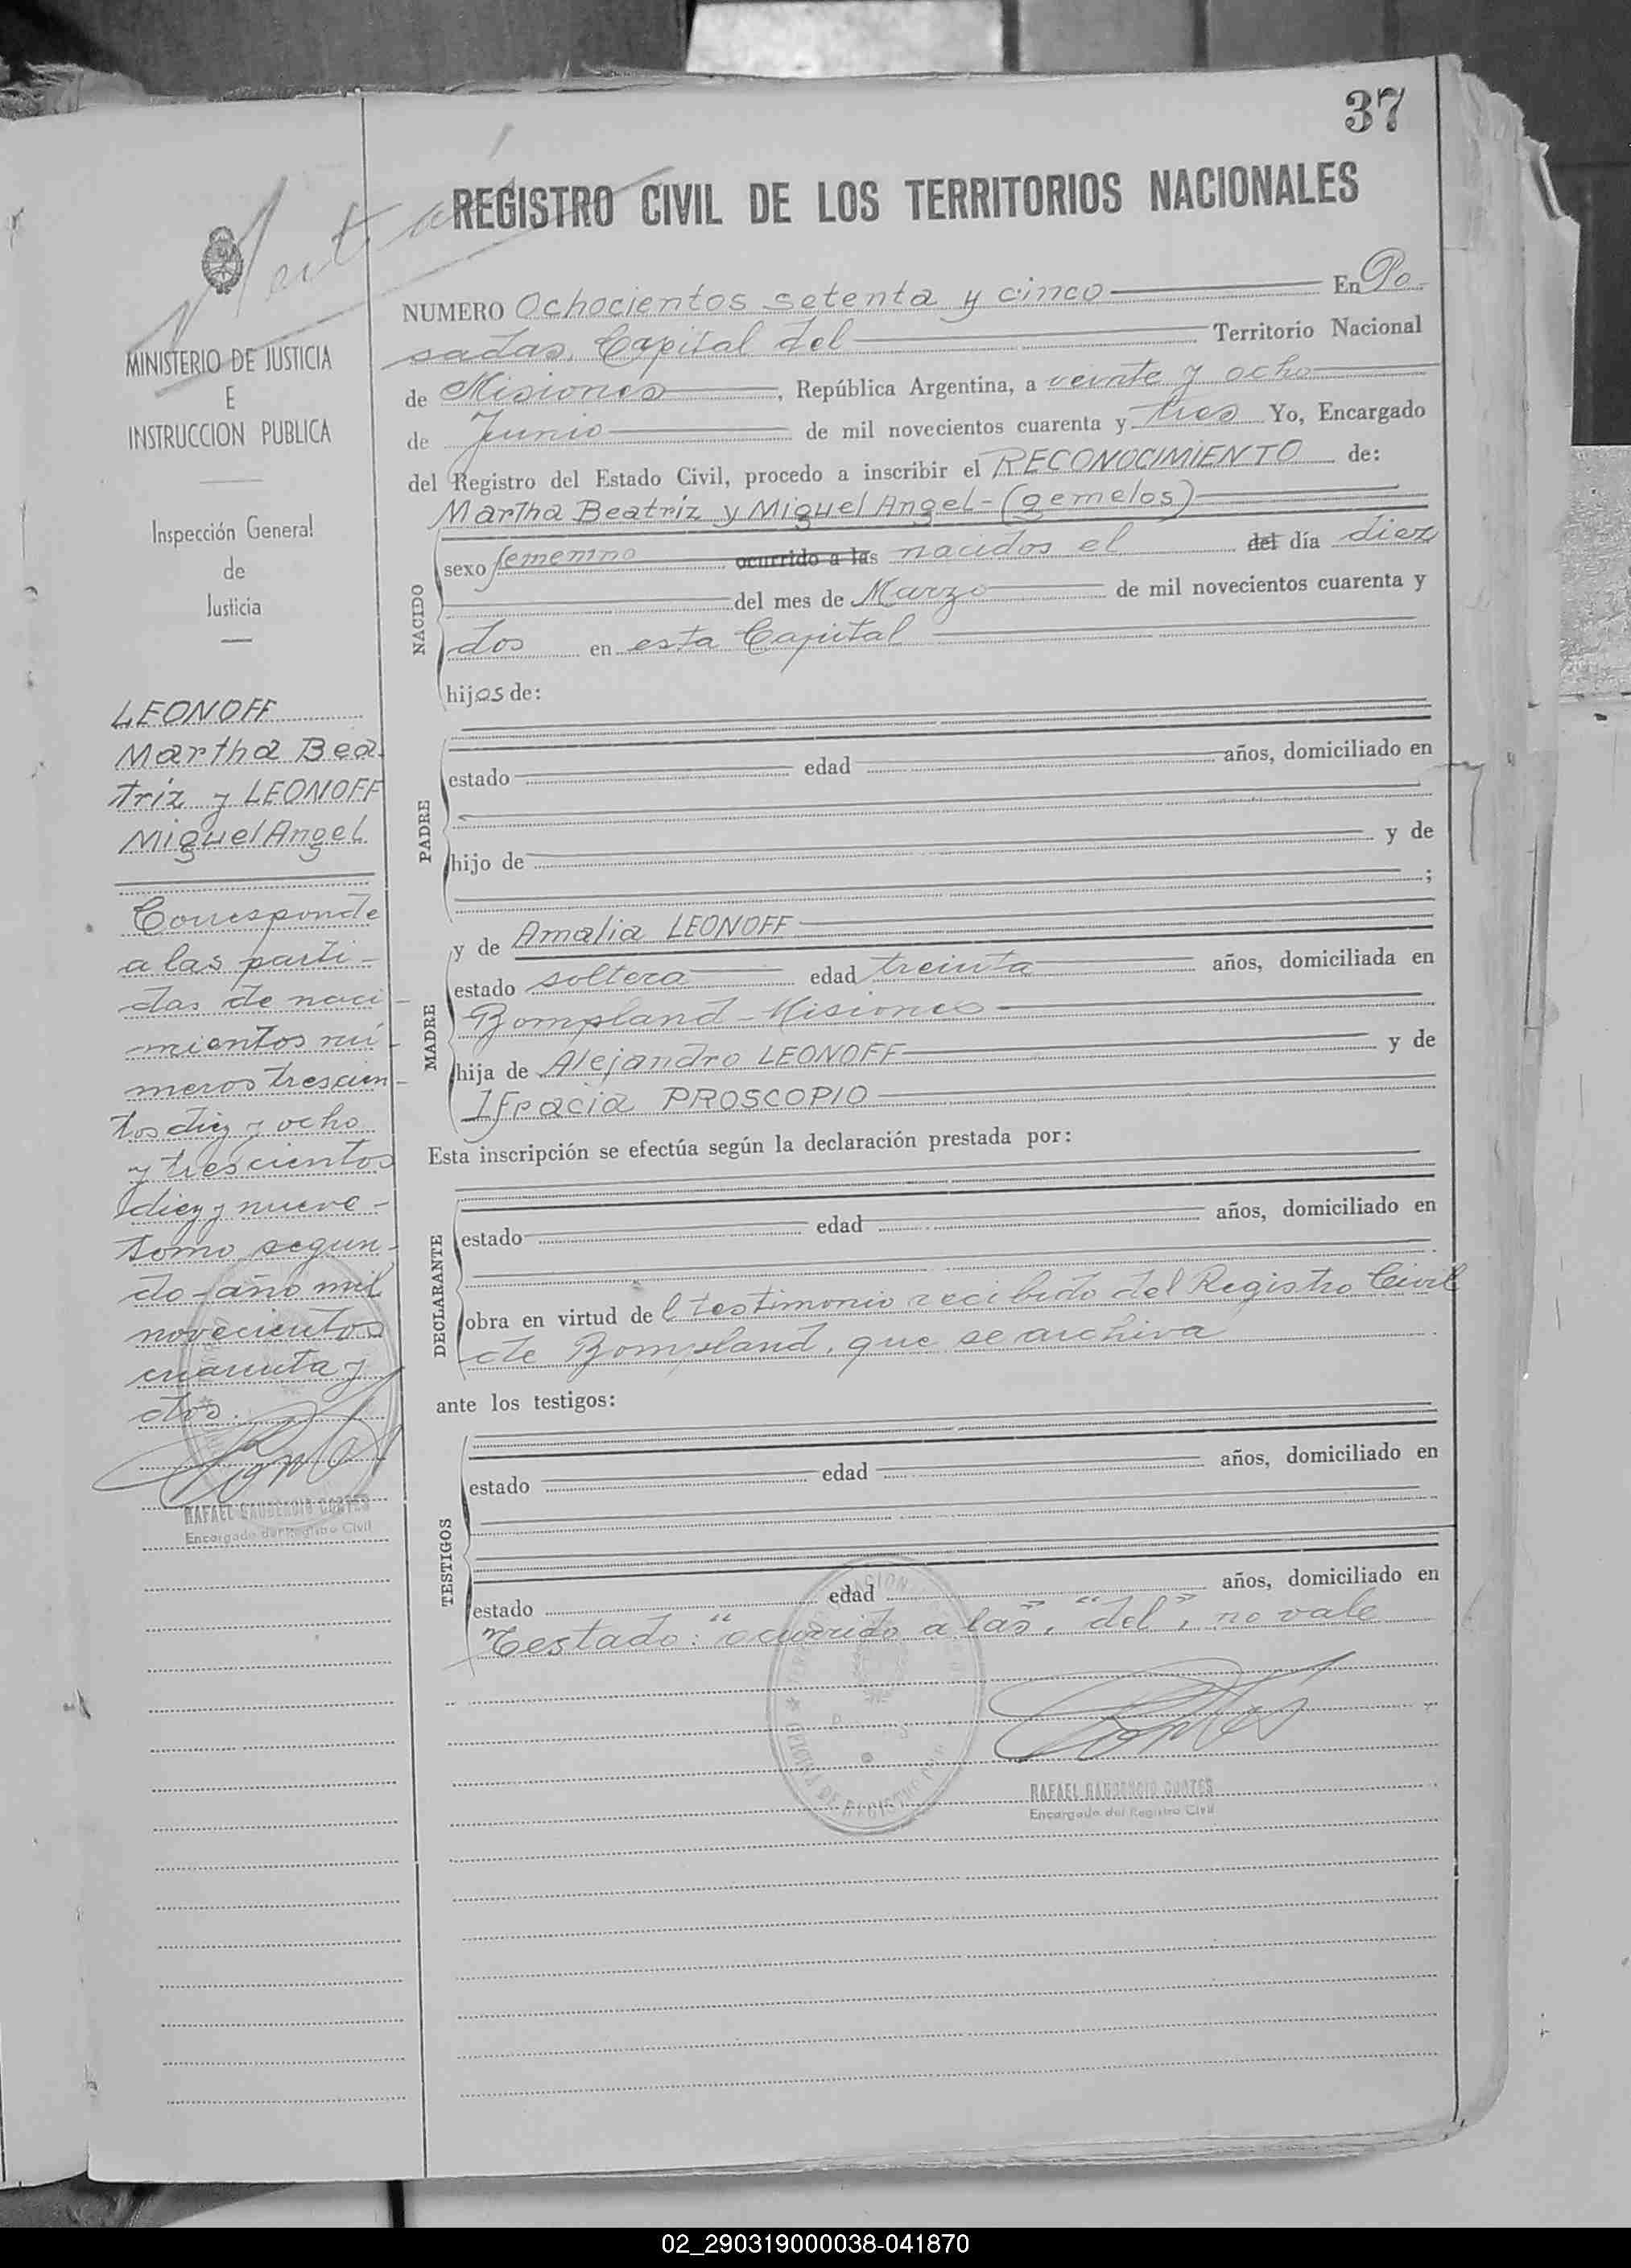 37
REGISTRO CIVIL DE LOS TERRITORIOS NACIONALES
NUMERO Ochocientos setenta y cinco En Po-
sadas, Capital del Territorio Nacional
de Misiones, República Argentina, a veinte y ocho
de Junio de mil novecientos cuarenta y tres Yo, Encargado
del Registro del Estado Civil, procedo a inscribir el RECONOCIMIENTO de:
Martha Beatríz y Miguel Angel - (gemelos)
NACIDO
sexo femenino ocurrido a las nacidos el del día diez
del mes de Marzo de mil novecientos cuarenta y
dos en esta Capital
hijos de:
PADRE
estado edad años, domiciliado en
hijo de y de
;
MADRE
y de Amalia LEONOFF
estado soltera edad treinta años, domiciliada en
Bompland - Misiones
hija de Alejandro LEONOFF y de
IFracia PROSCOPIO
Esta inscripción se efectúa según la declaración prestada por:
DECLARANTE
estado edad años, domiciliado en
obra en virtud del testimonio recibido del Registro Civil
de Bompland, que se archiva
ante los testigos:
TESTIGOS
estado edad años, domiciliado en
estado edad años, domiciliado en
Testado: "ocurrido a las", "del", no vale
RAFAEL GAUDENCIO CORTES
Encargado del Registro Civil
MINISTERIO DE JUSTICIA
E
INSTRUCCION PUBLICA
Inspección General
de
Justicia
LEONOFF
Martha Bea-
triz y LEONOFF
Miguel Angel
Corresponde
a las parti-
das de naci-
mientos nú-
meros trescien-
tos diez y ocho
y trescientos
diez y nueve-
tomo segun-
do - año mil
novecientos
cuarenta y
dos.
RAFAEL GAUDENCIO CORTES
Encargado del Registro Civil
02_290319000038-041870